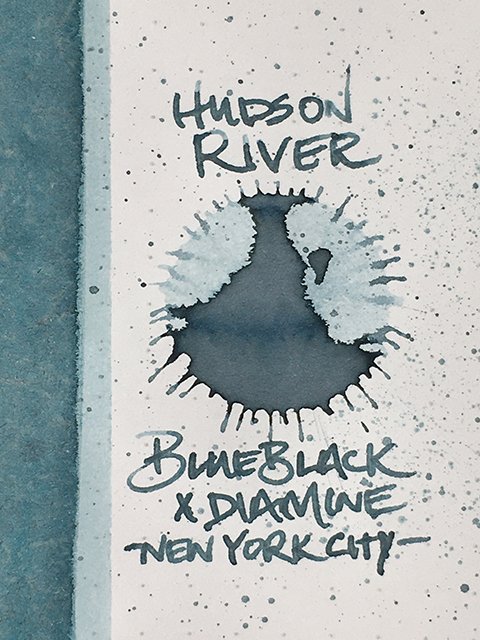 HUDSON
RIVER
BLUEBLACK
X DIAMINE
-NEW YORK CITY-